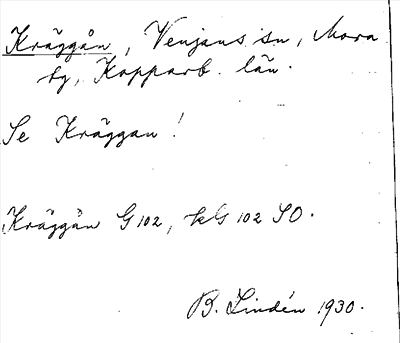 Kräggån, Venjans sn, Mora
tg, Kopparb. län.
Se Kräggan!
Kräggån G 102, kbl G 102 SO.
B. Lindén 1930.